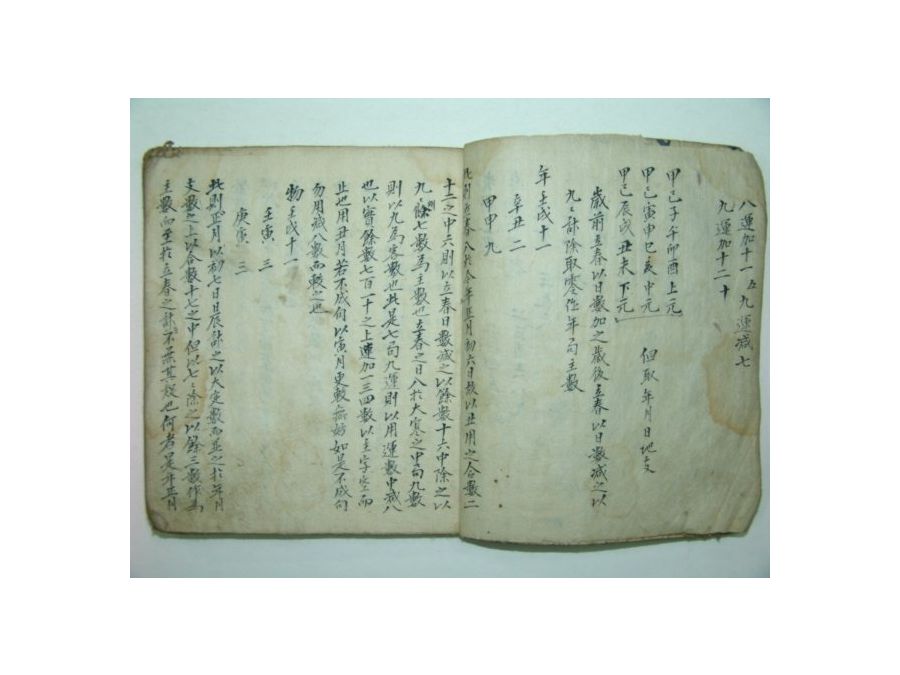 八運加十一 五九運減七
九運加十二 十
甲己子午卯酉上元
甲己寅申巳亥中元 但取年月日地支
甲己辰戌丑未下元
歲前立春以日數加之歲後立春以日數減之以
九九計除取零作年局主數
年壬戌十一
辛丑二
甲申九
此則立春入於今年正月初六日故以丑用之合數二
十二之中六則以立春日數減之以餘數十六中除之以
九則餘七數為主數也立春之日入於大寒之中旬九數
則以九為客數也此是七局九運則以用運數中減八
也以實餘數七百一十之上連加一三四數以主字空而
止也用丑月若不成句以寅月更數無妨如是不成句
勿用減八數而數之也
物壬戌十一
壬寅三
庚寅三
此則正月以初七日辰計之以大定數而並之於年月
支數之上以合數十七之中但以七七除之以餘三數作為
主數而至於立春之計不無其放也何者是年正月